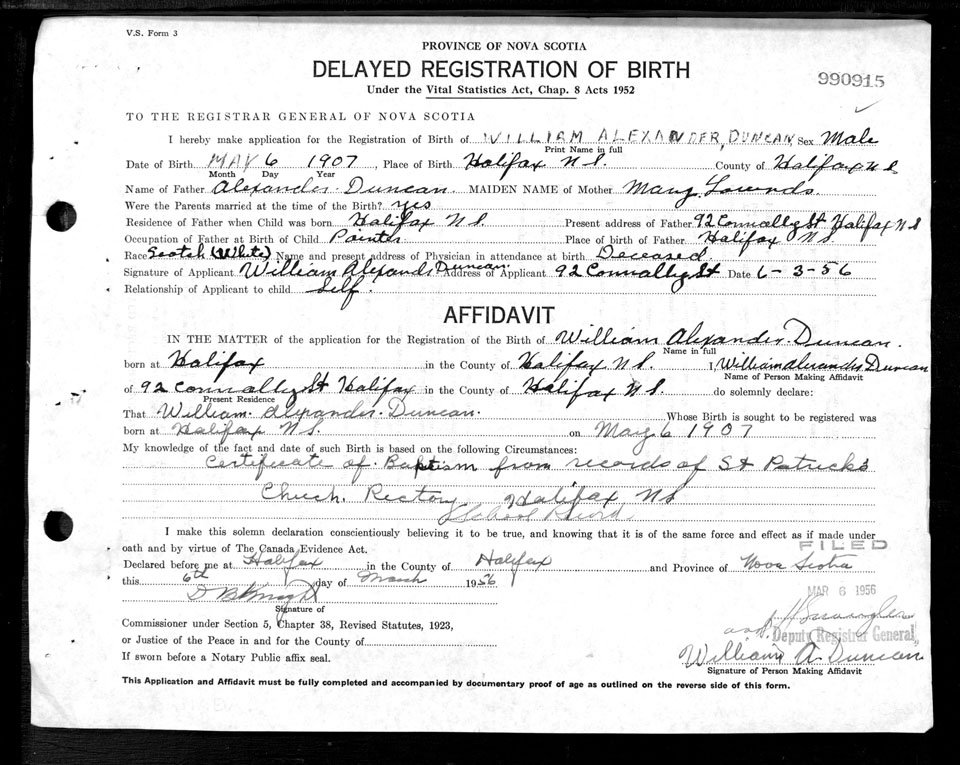 V.S. Form 3
PROVINCE OF NOVA SCOTIA
DELAYED REGISTRATION OF BIRTH
990915
Under the Vital Statistics Act, Chap. 8 Acts 1952
TO THE REGISTRAR GENERAL OF NOVA SCOTIA
I hereby make application for the Registration of Birth of WILLIAM ALEXANDER, DUNCAN, Sex Male
Print Name in full
Date of Birth MAY 6 1907, Place of Birth Halifax N S. County of Halifax N S
Month Day Year
Name of Father Alexander Duncan. MAIDEN NAME of Mother Mary Lownds.
Were the Parents married at the time of the Birth? yes
Residence of Father when Child was born Halifax N S. Present address of Father 92 Connally St Halifax N S
Occupation of Father at Birth of Child Painter Place of birth of Father Halifax N S.
Race Scotch (White) Name and present address of Physician in attendance at birth Deceased
Signature of Applicant William Alexander Duncan Address of Applicant 92 Connally St Date 6-3-56
Relationship of Applicant to child Self.
AFFIDAVIT
IN THE MATTER of the application for the Registration of the Birth of William Alexander Duncan.
Name in full
born at Halifax in the County of Halifax N S. I, William Alexander Duncan
Name of Person Making Affidavit
of 92 Connally St Halifax in the County of Halifax N S. do solemnly declare:
Present Residence
That William Alexander Duncan. Whose Birth is sought to be registered was
born at Halifax N S. on May 6 1907
My knowledge of the fact and date of such Birth is based on the following Circumstances:
Certificate of Baptism from records of St Patrick's
Church. Rectory Halifax N S
School Record
I make this solemn declaration conscientiously believing it to be true, and knowing that it is of the same force and effect as if made under
oath and by virtue of The Canada Evidence Act.
FILED
Declared before me at Halifax in the County of Halifax and Province of Nova Scotia
this 6th day of March 1956
MAR 6 1956
Signature of
Commissioner under Section 5, Chapter 38, Revised Statutes, 1923,
Deputy Registrar General
or Justice of the Peace in and for the County of
William A Duncan
If sworn before a Notary Public affix seal.
Signature of Person Making Affidavit
This Application and Affidavit must be fully completed and accompanied by documentary proof of age as outlined on the reverse side of this form.